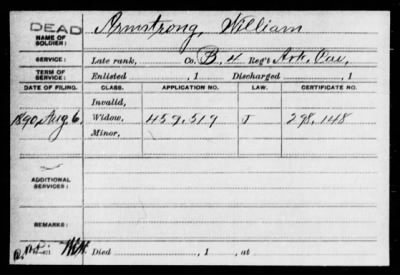 DEAD
NAME OF SOLDIER: Armstrong, William
SERVICE: Late rank, Co. B. 4 Reg't Ark. Cav,
TERM OF SERVICE: Enlisted , 1 Discharged , 1
DATE OF FILING. CLASS. APPLICATION NO. LAW. CERTIFICATE NO.
Invalid,
1890, Aug 6, Widow, 459,519 J 298,148
Minor,
ADDITIONAL SERVICES:
REMARKS:
Died , 1 , at